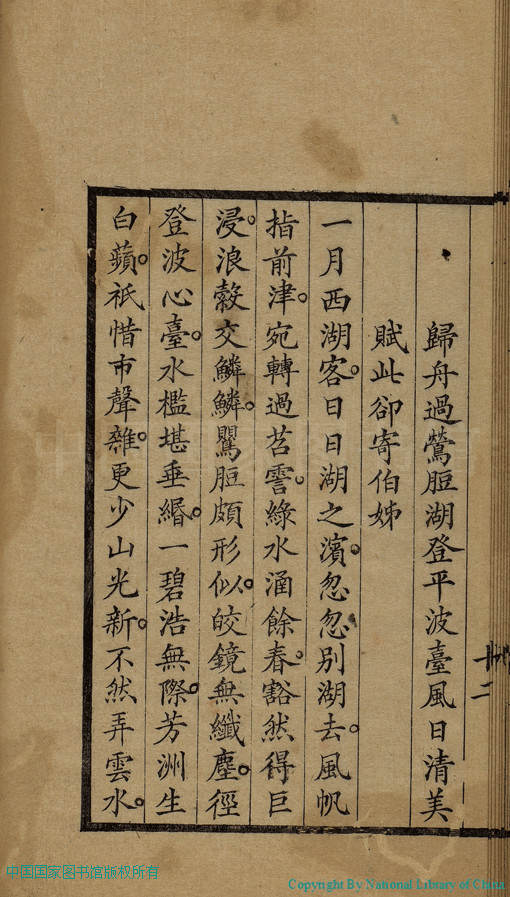 歸舟過鶯脰湖登平波臺風日清美
賦此卻寄伯姊
一月西湖客。日日湖之濱。忽忽別湖去。風帆
指前津。宛轉過苕霅。綠水涵餘春。豁然得巨
浸。浪縠交鱗鱗。鸎脰頗形似。皎鏡無纖塵。徑
登波心臺。水檻堪垂緡。一碧浩無際。芳洲生
白蘋。祇惜市聲雜。更少山光新。不然弄雲水。
十二
中国国家图书馆版权所有
Copyright By National Library of China